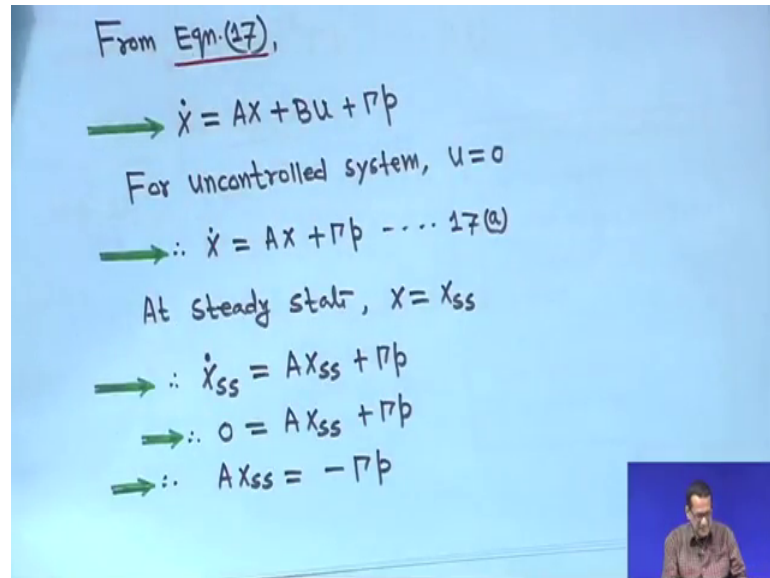 From Eqn.(17),
ẋ = AX + BU + Γp
For uncontrolled system, U=0
∴ ẋ = AX + Γp ---- 17(a)
At steady stat, X = Xss
∴ ẋss = AXss + Γp
∴ 0 = AXss + Γp
∴ AXss = - Γp